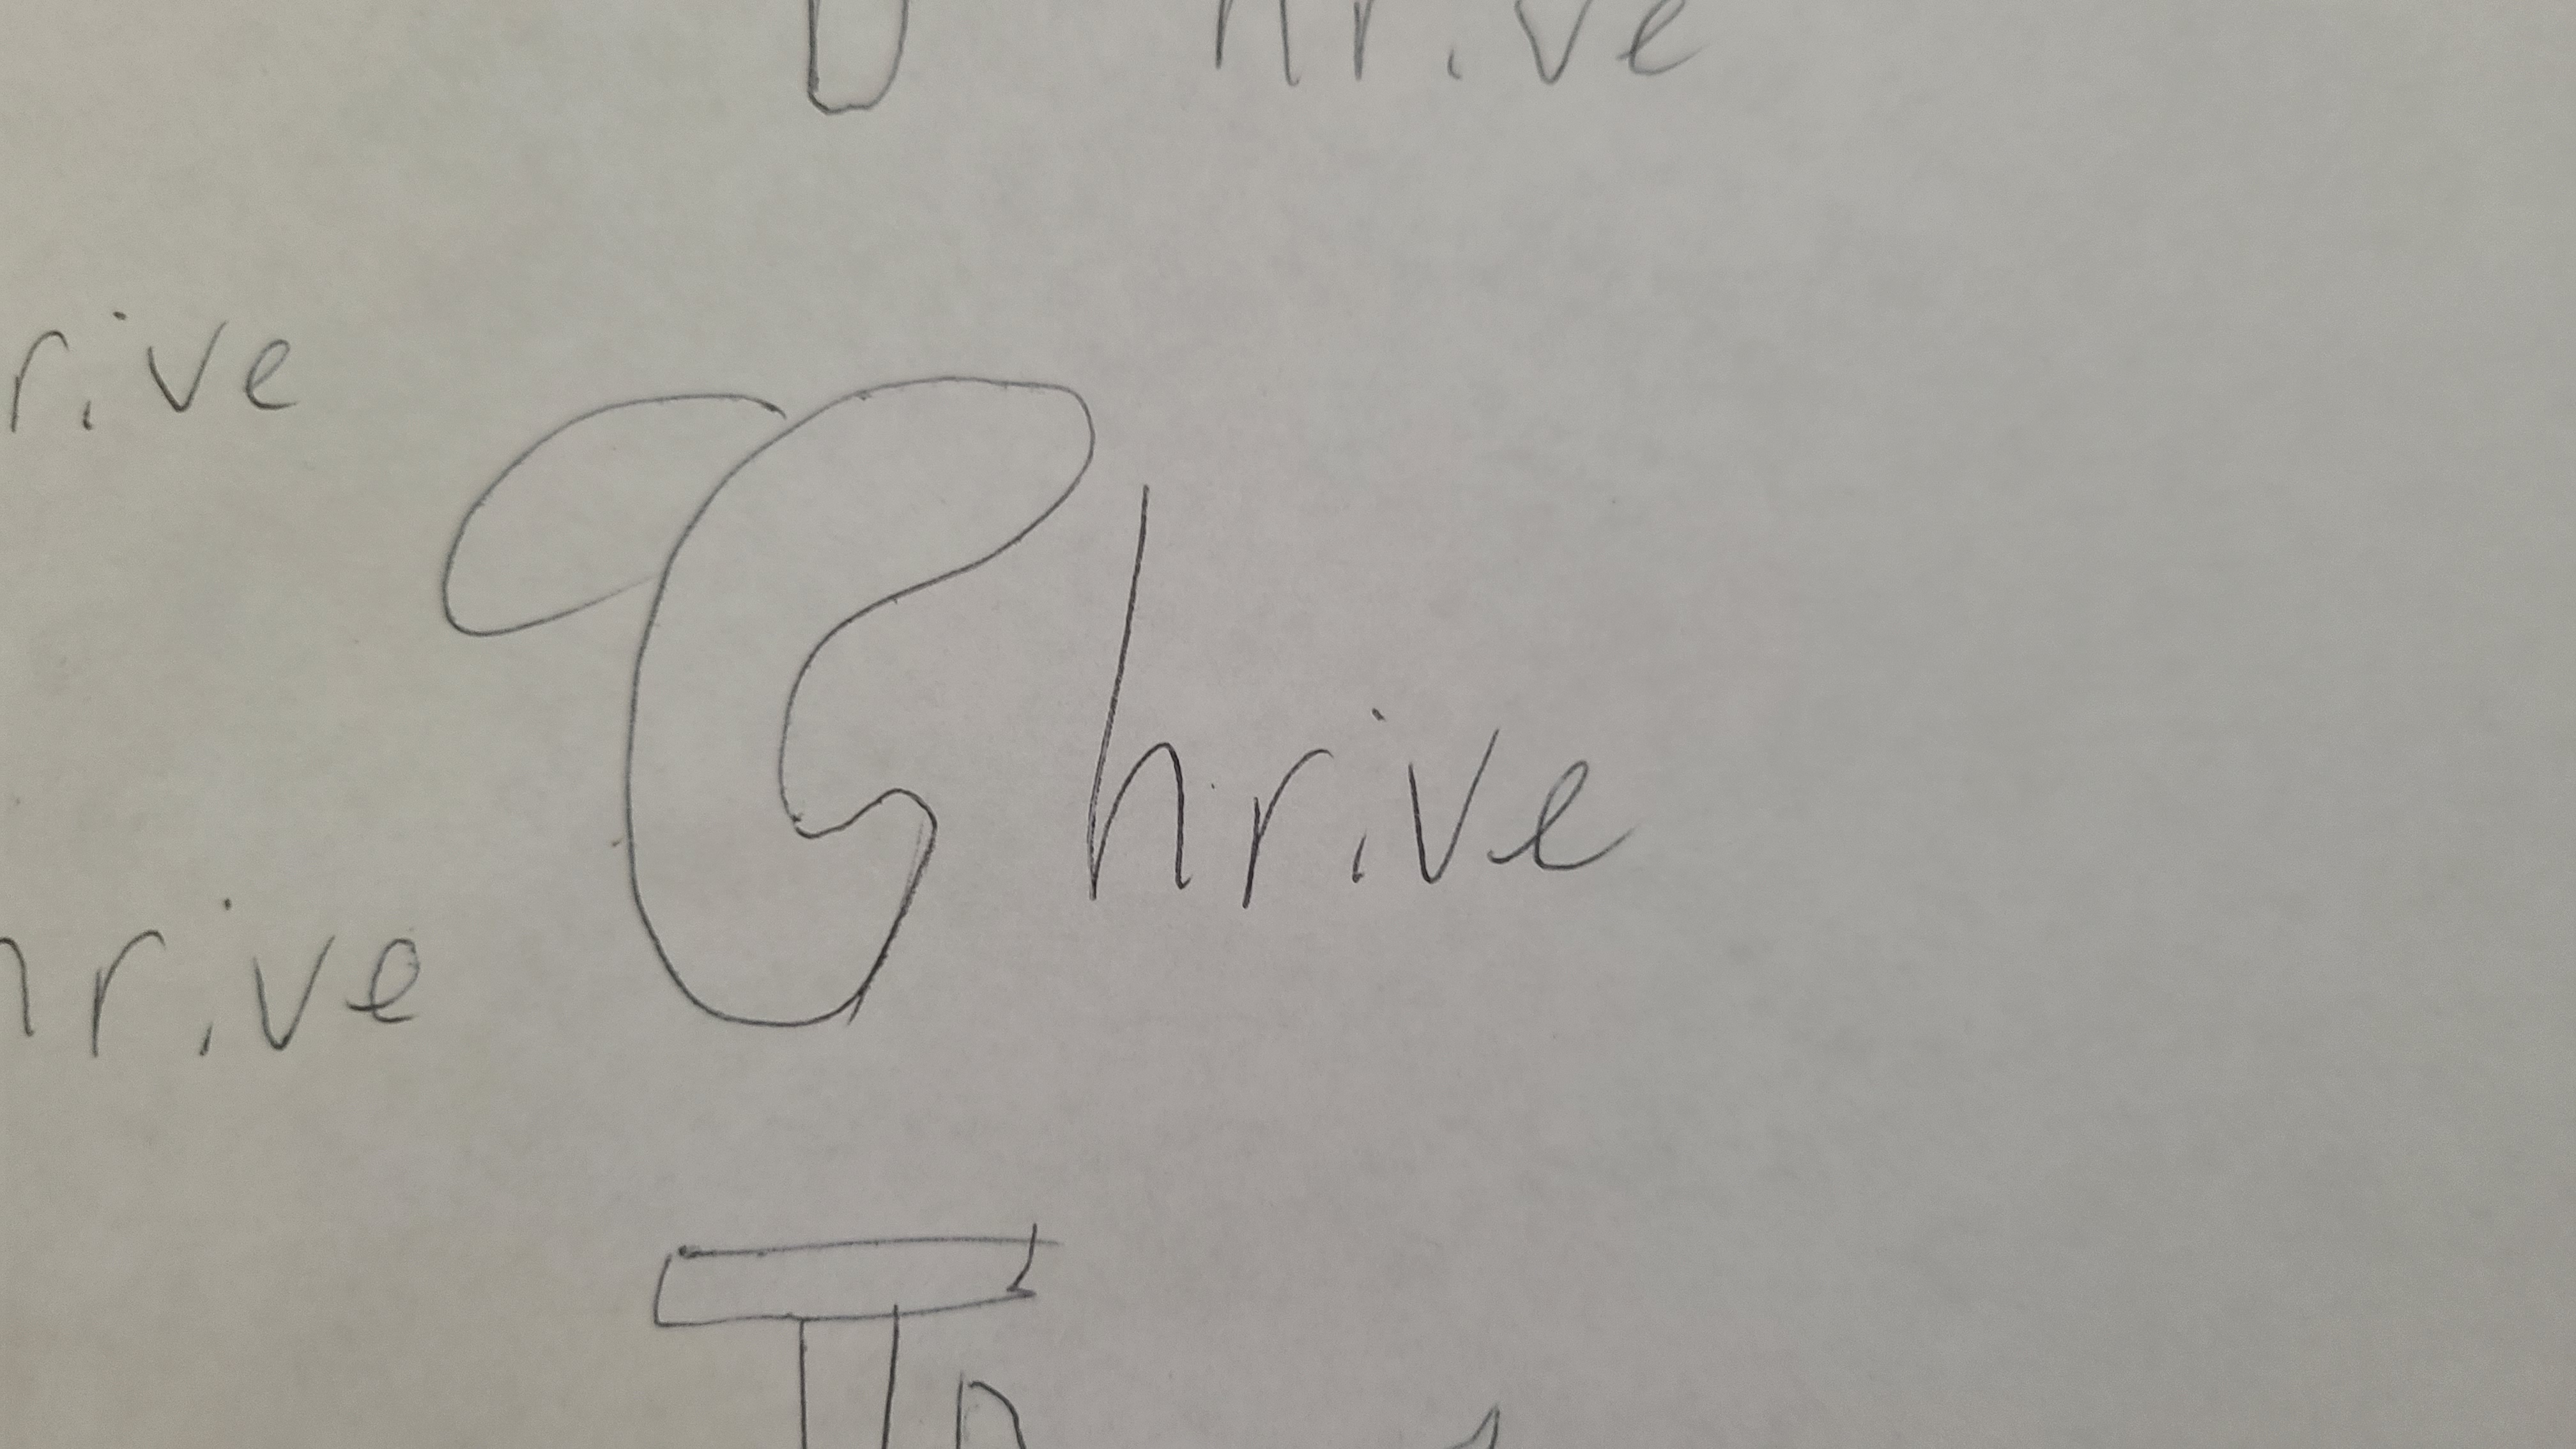 hrive
rive
Thrive
hrive
T